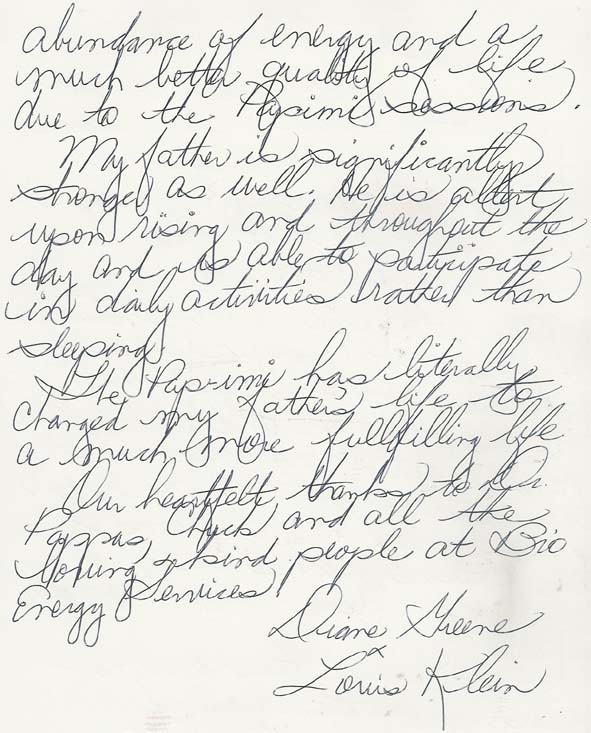 abundance of energy and a
much better quality of life
due to the Papimi sessions.
My father is significantly
stronger as well. He is alert
upon rising and throughout the
day and is able to participate
in daily activities rather than
sleeping.
The Pap-imi has literally
changed my father's life to
a much more fullfilling life
Our heartfelt thanks to Dr.
Pappas, Chuck and all the
loving & kind people at Bio
Energy Services
Diane Greene
&
Louis Klein